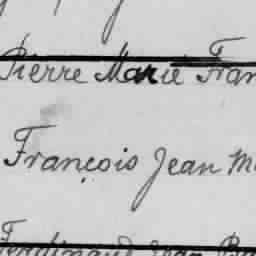 Pierre Marie Fran
François Jean M
Ferdinand Jean